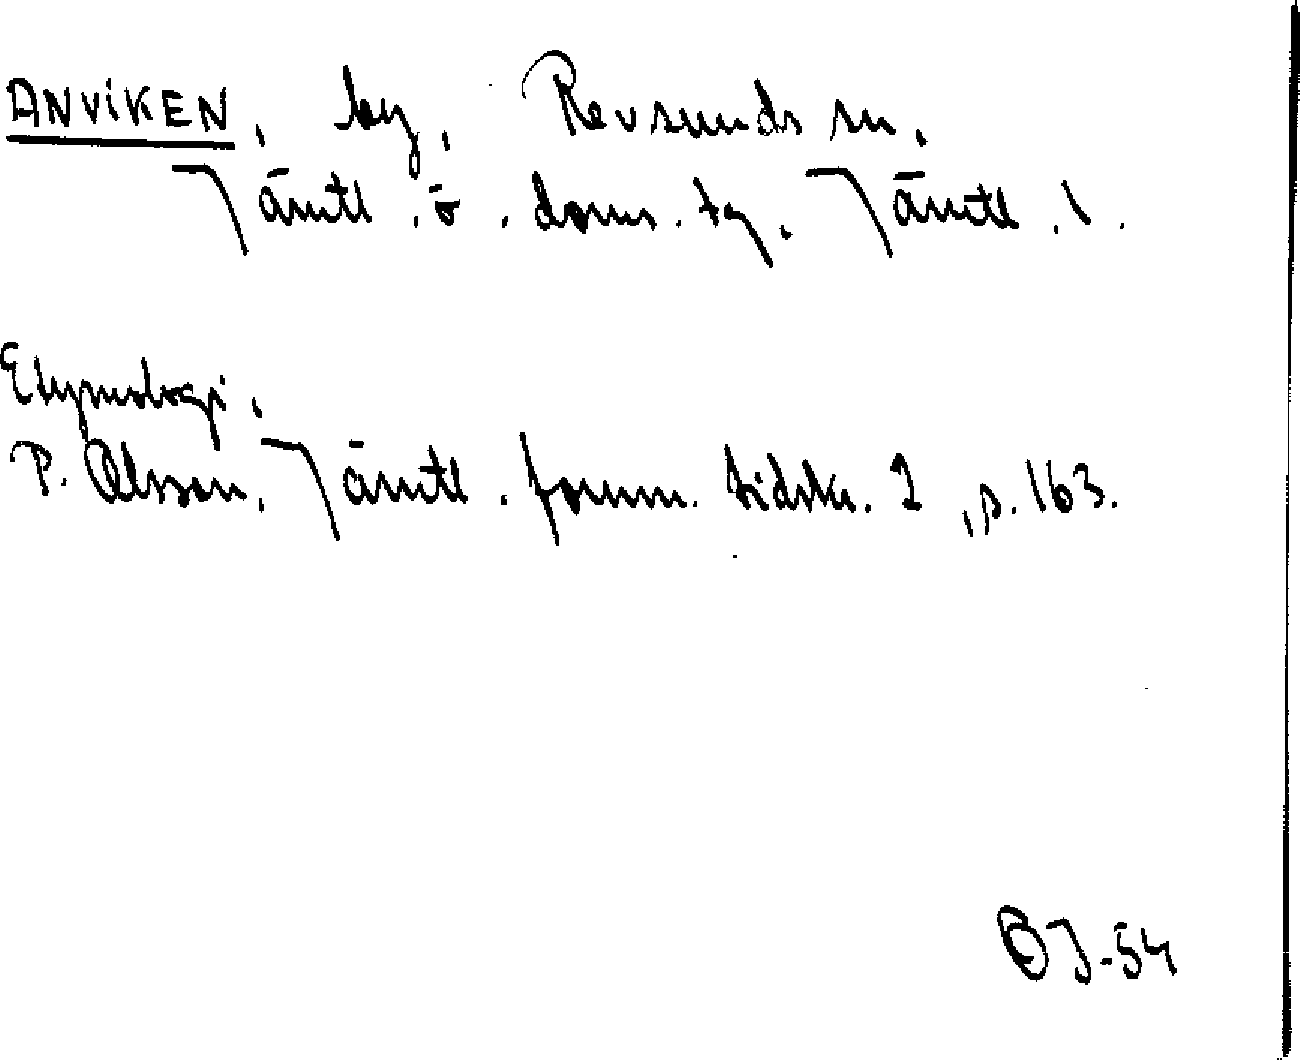 ANVIKEN, by, Revsunds sn,
Jämtl. ö. doms. tg, Jämtl. l.
Etymologi,
P. Olsson, Jämtl. fornm. tidskr. 2, s. 163.
-54